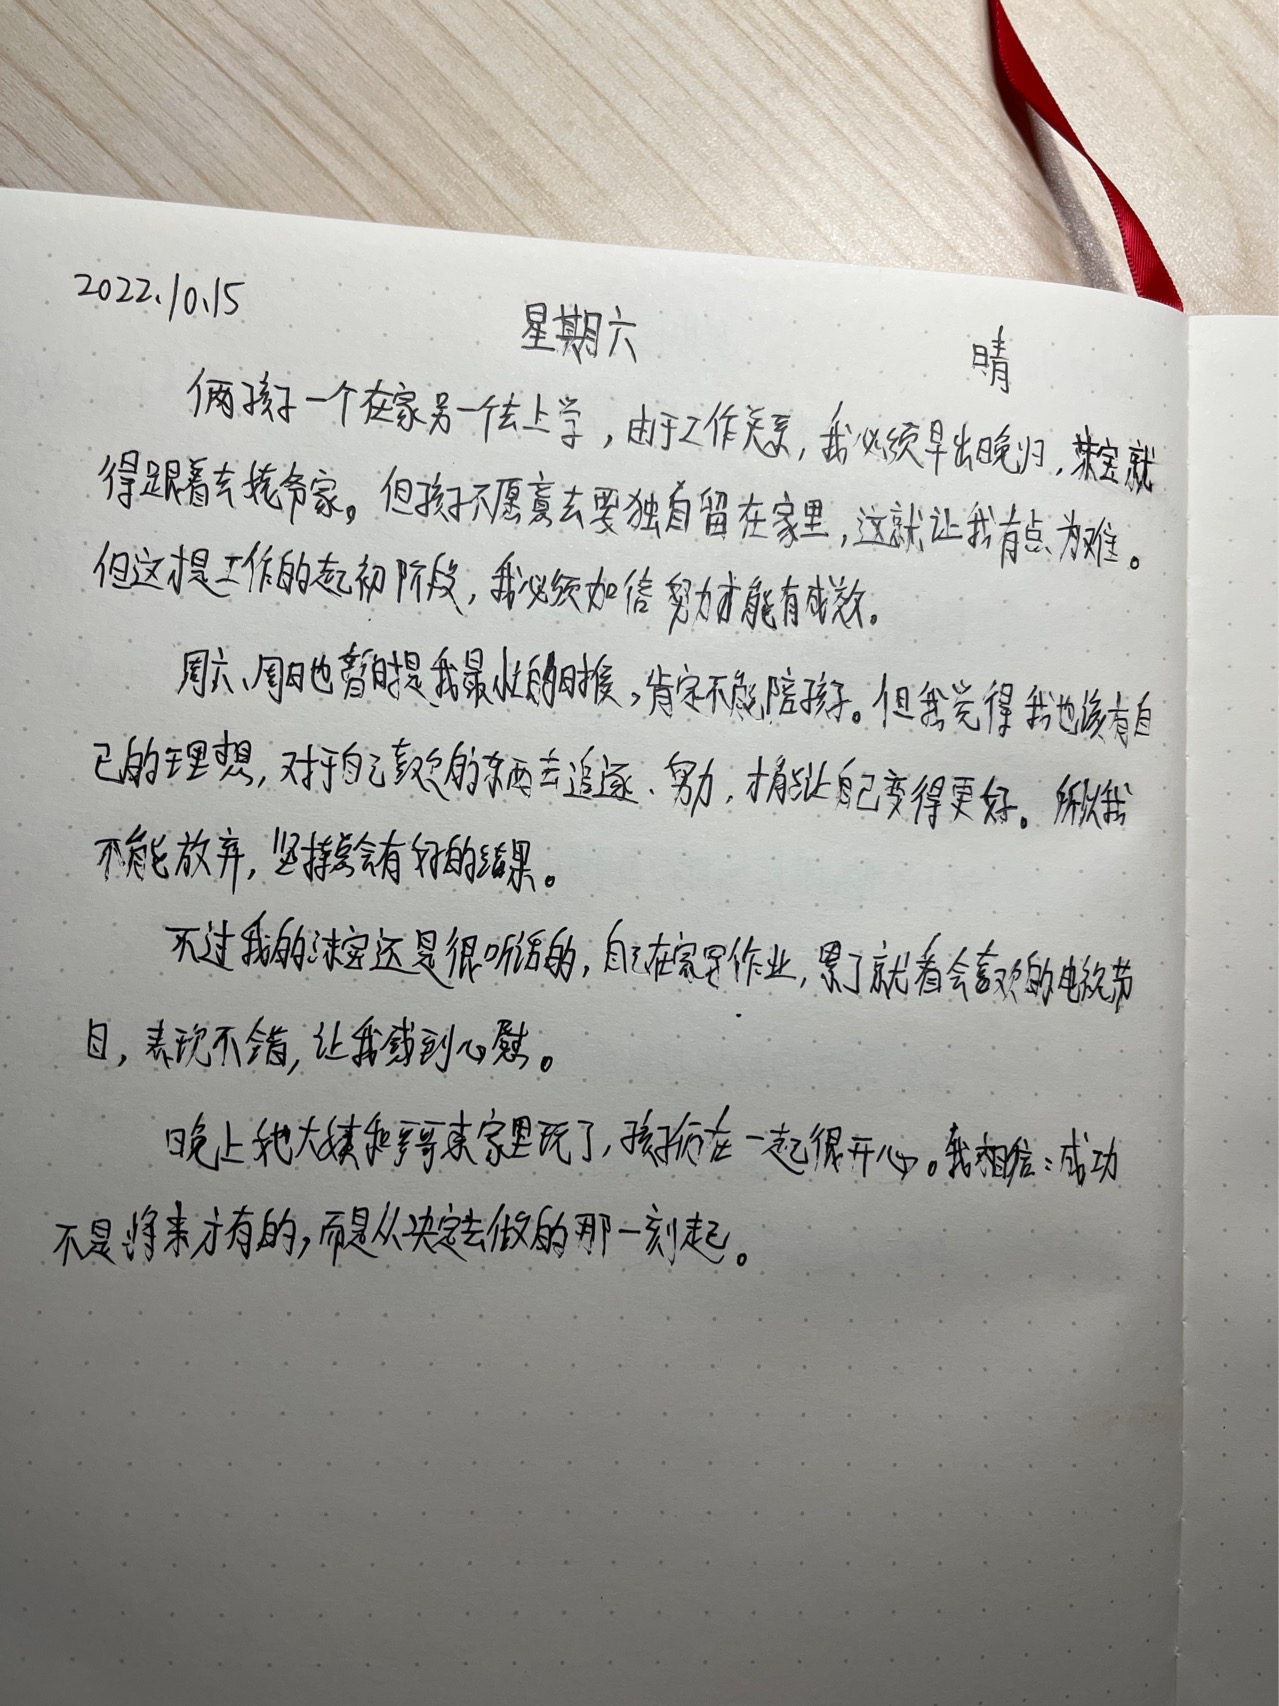 2022.10.15
星期六
晴
俩孩子一个在家另一个去上学，由于工作关系，我必须早出晚归，宝就
得跟着去爷家。但孩子不愿意去要独自留在家里，这就让我有点为难。
但这才是工作的起初阶段，我必须加倍努力才能有成效。
周六、周日也暂时是我最忙的时候，肯定不能陪孩子。但我觉得我也该有自
己的理想，对于自己喜欢的东西去追逐、努力，才能让自己变得更好。所以我
不能放弃，坚持总会有好的结果。
不过我的宝还是很听话的，自己在家写作业，累了就看会喜欢的电视节
目，表现不错，让我感到心慰。
晚上他大姨和哥哥来家里玩了，孩子们在一起很开心。我相信：成功
不是将来才有的，而是从决定去做的那一刻起。